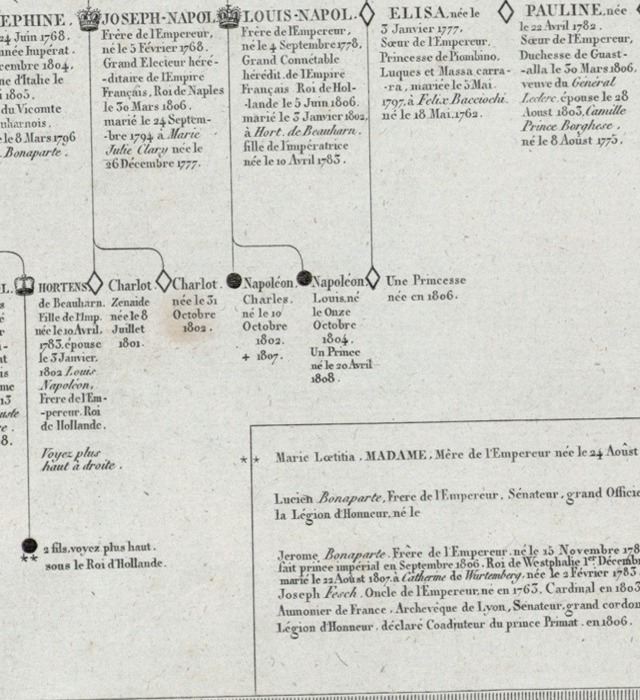 EPHINE.
24 Juin 1768.
nnée Impérat.
cembre 1804.
ne d'Italie le
i 1805.
du Vicomte
uharnois.
le 8 Mars 1796
Bonaparte.
JOSEPH-NAPOL.
Frère de l'Empereur,
né le 5 Février 1768.
Grand Electeur héré-
-ditaire de l'Empire
Français, Roi de Naples
le 30 Mars 1806.
marié le 24 Septem-
-bre 1794 à Marie
Julie Clary née le
26 Décembre 1777.
LOUIS-NAPOL.
Frère de l'Empereur,
né le 4 Septembre 1778,
Grand Connétable
hérédit. de l'Empire
Français Roi de Hol-
-lande le 5 Juin 1806.
marié le 3 Janvier 1802,
à Hort. de Beauharn.
fille de l'impératrice
née le 10 Avril 1783.
ELISA, née le
3 Janvier 1777.
Sœur de l'Empereur.
Princesse de Piombino.
Luques et Massa carra-
-ra, mariée le 5 Mai
1797, à Felix Bacciochi.
né le 18 Mai 1762.
PAULINE, née
le 22 Avril 1782.
Sœur de l'Empereur,
Duchesse de Guast-
-alla le 30 Mars 1806.
veuve du Général
Leclerc, épouse le 28
Aoust 1803, Camille
Prince Borghese,
né le 8 Aoùst 1775.
L.
HORTENS
de Beauharn.
Fille de l'Imp.
née le 10 Avril,
1783, épouse
le 3 Janvier.
1802 Louis
Napoléon,
Frere de l'Em-
-pereur. Roi
de Hollande.
Voyez plus
haut à droite.
Charlot.
Zenaide
née le 8
Juillet
1801.
Charlot.
née le 31
Octobre
1802.
Napoléon
Charles.
né le 10
Octobre
1802.
+ 1807.
Napoléon
Louis, né
le Onze
Octobre
1804.
Un Prince
né le 20 Avril
1808.
Une Princesse
née en 1806.
2 fils, voyez plus haut.
** sous le Roi d'Hollande.
** Marie Lœtitia. MADAME, Mère de l'Empereur née le 24 Août
Lucien Bonaparte, Frere de l'Empereur, Sénateur, grand Officie
la Légion d'Honneur, né le
Jerome Bonaparte. Frère de l'Empereur, né le 15 Novembre 178
fait prince impérial en Septembre 1806. Roi de Westphalie 1er Décemb
marié le 22 Aoust 1807, à Catherine de Würtemberg, née le 2 Février 1783.
Joseph Fesch. Oncle de l'Empereur, ne en 1763. Cardinal en 1803
Aumonier de France. Archevêque de Lyon, Sénateur, grand cordon
Légion d'Honneur, déclaré Coadjuteur du prince Primat, en 1806.